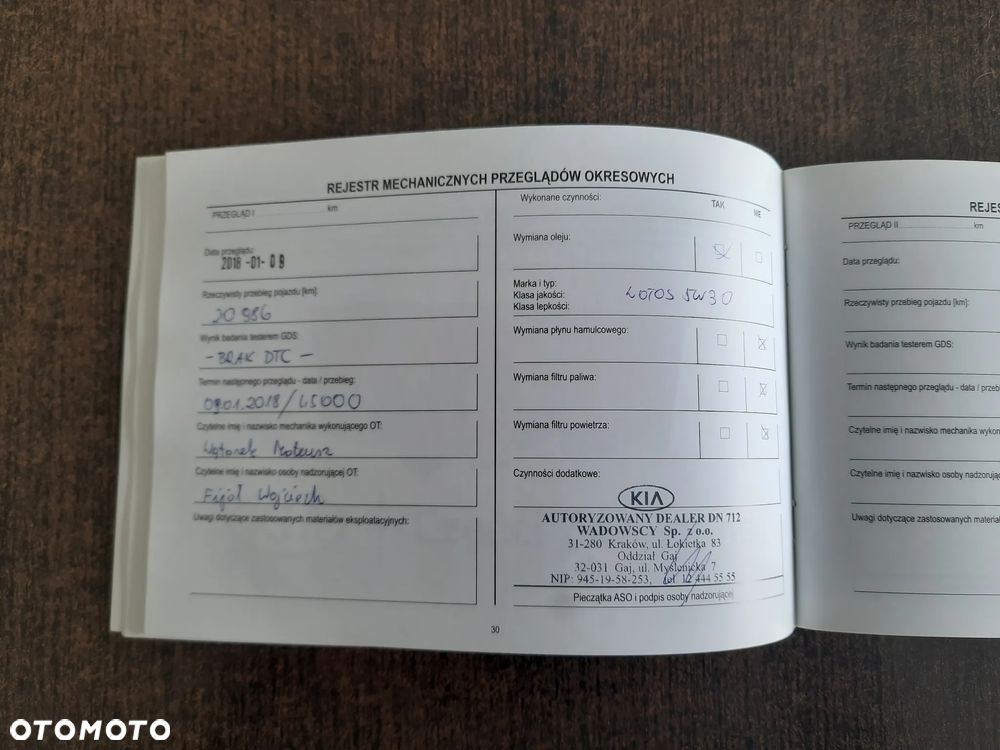 REJESTR MECHANICZNYCH PRZEGLĄDÓW OKRESOWYCH
PRZEGLĄD I km
Data przeglądu:
2018-01-09
Rzeczywisty przebieg pojazdu [km]:
20 986
Wynik badania testerem GDS:
- BRAK DTC -
Termin następnego przeglądu - data / przebieg:
09.01.2018/45000
Czytelne imię i nazwisko mechanika wykonującego OT:
Wątorek Mateusz
Czytelne imię i nazwisko osoby nadzorującej OT:
Fijoł Wojciech
Uwagi dotyczące zastosowanych materiałów eksploatacyjnych:
Wykonane czynności: TAK NIE
Wymiana oleju:
Marka i typ:
Klasa jakości: LOTOS 5W30
Klasa lepkości:
Wymiana płynu hamulcowego:
Wymiana filtru paliwa:
Wymiana filtru powietrza:
Czynności dodatkowe:
KIA
AUTORYZOWANY DEALER DN 712
WADOWSCY Sp. z o.o.
31-280 Kraków, ul. Łokietka 83
Oddział Gaj
32-031 Gaj, ul. Myślenicka 7
NIP: 945-19-58-253, tel. 12 444 55 55
Pieczątka ASO i podpis osoby nadzorującej
30
REJES
PRZEGLĄD II km
Data przeglądu:
Rzeczywisty przebieg pojazdu [km]:
Wynik badania testerem GDS:
Termin następnego przeglądu - data / przeb
Czytelne imię i nazwisko mechanika wykon
Czytelne imię i nazwisko osoby nadzorując
Uwagi dotyczące zastosowanych materiał
OTOMOTO